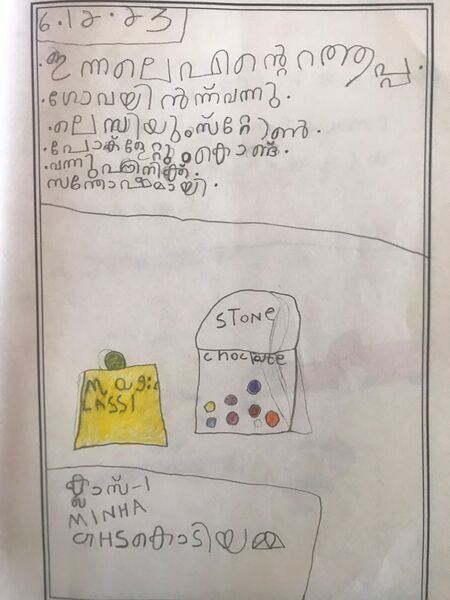 6.12.23
.ഇന്നലെ എന്റെ ആപ്പ.
.ഗോവയിൽന്ന് വന്നു.
.ലെസ്സിയും.സ്റ്റോൺ.
.ചോക്ളേറ്റും.കൊണ്ട്.
.വന്നു എനിക്ക്.
സന്തോഷമായി.
STONe
choclate
LASSI
ക്ലാസ്-1
MINHA
GHSകൊടിയമ്മ